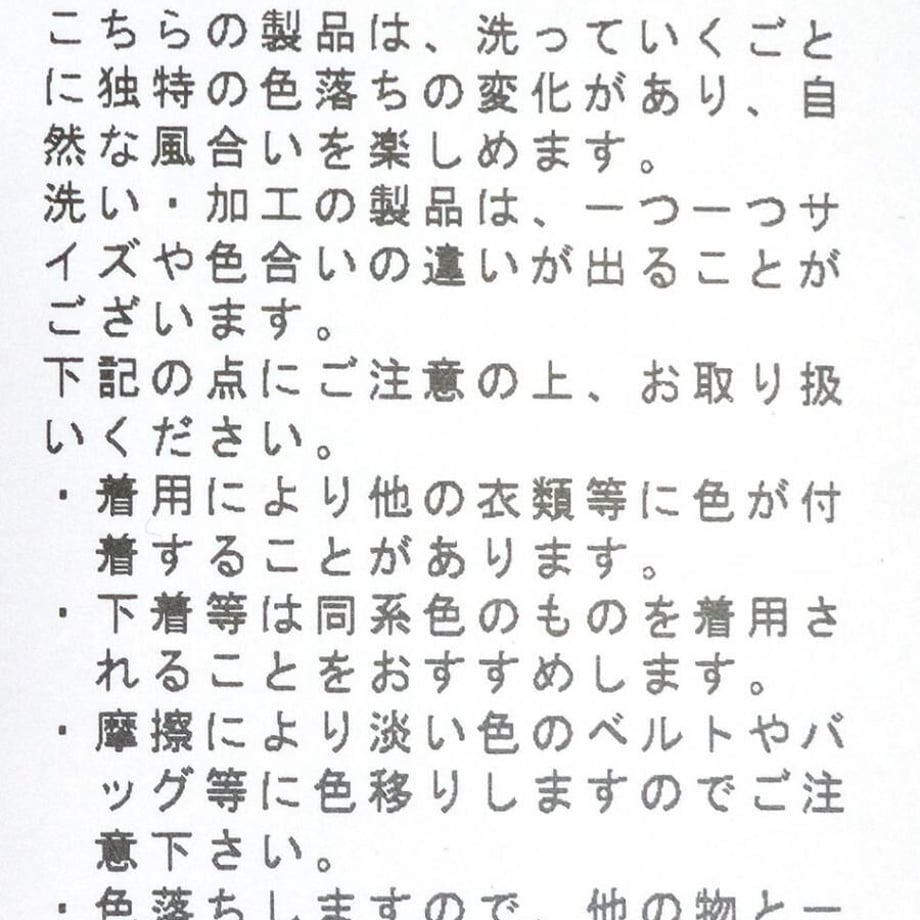 こちらの製品は、洗っていくごと
に独特の色落ちの変化があり、自
然な風合いを楽しめます。
洗い・加工の製品は、一つ一つサ
イズや色合いの違いが出ることが
ございます。
下記の点にご注意の上、お取り扱
いください。
・着用により他の衣類等に色が付
着することがあります。
・下着等は同系色のものを着用さ
れることをおすすめします。
・摩擦により淡い色のベルトやバ
ッグ等に色移りしますのでご注
意下さい。
・色落ちしますので、他の物と一